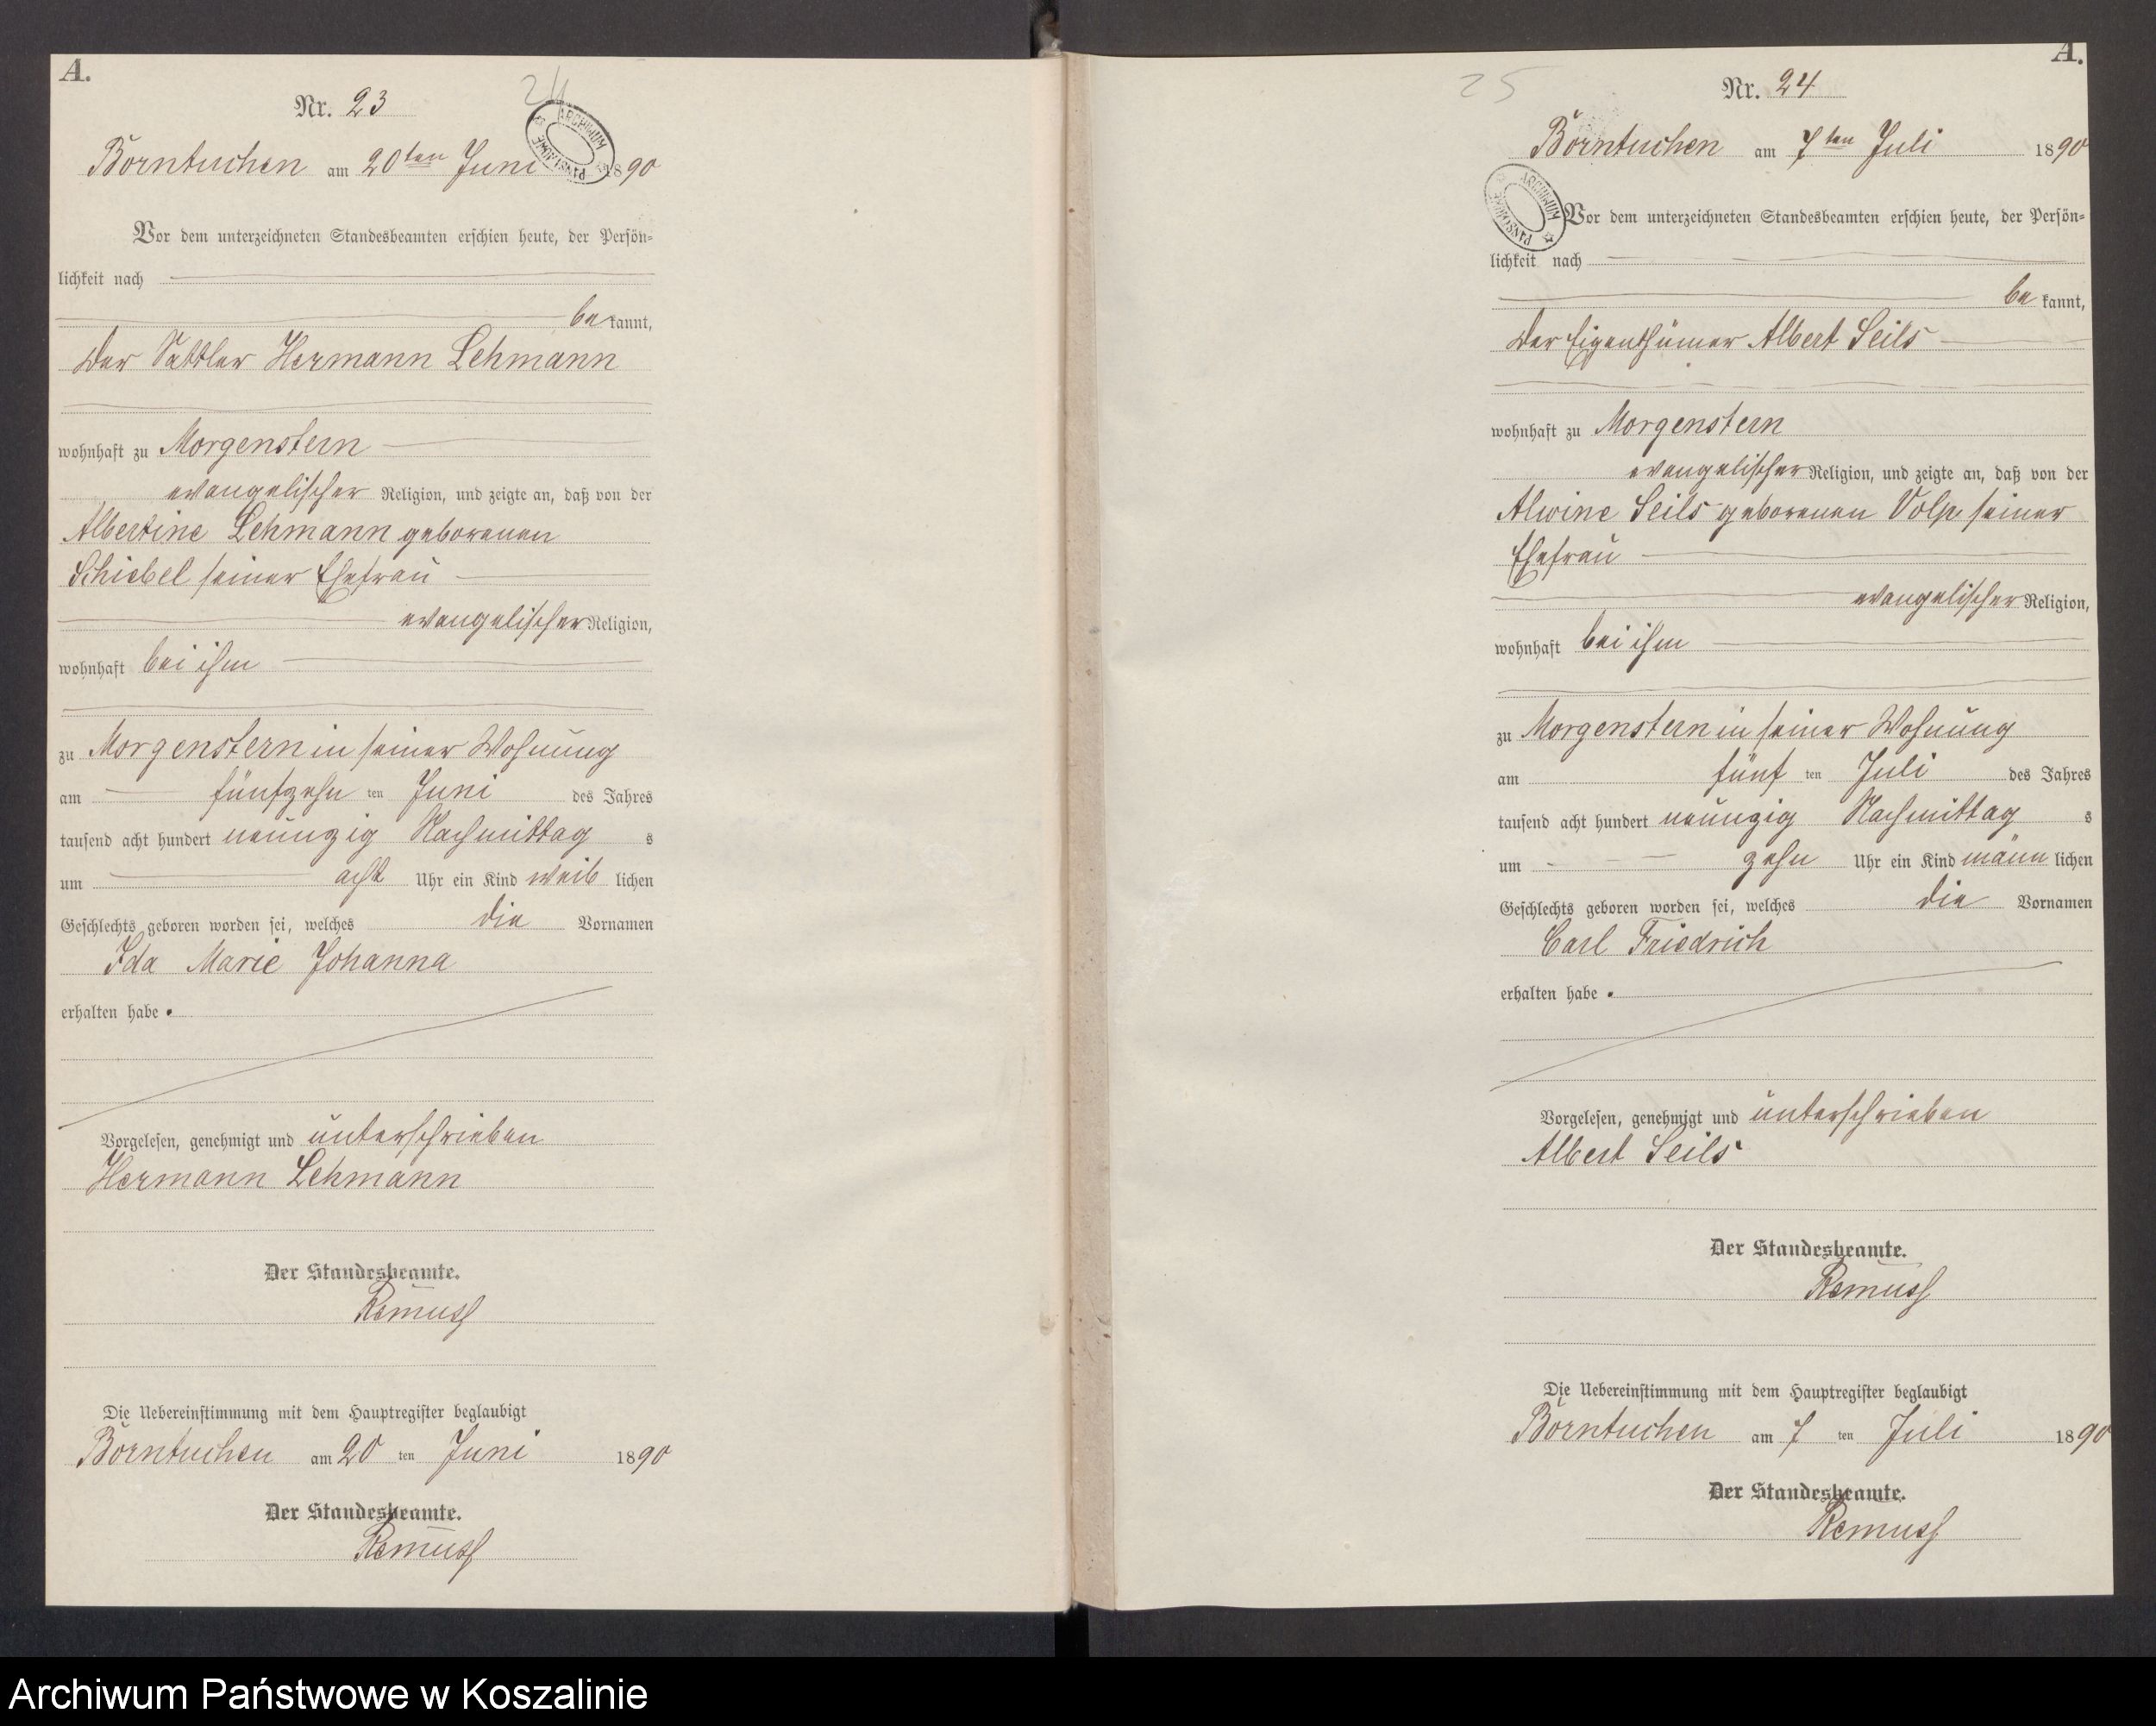 A.
Nr. 23
24
ARCHIWUM PAŃSTWOWE
Borntuchen am 20ten Juni 1890
Vor dem unterzeichneten Standesbeamten erschien heute, der Persön-
lichkeit nach
be kannt,
der Sattler Hermann Lehmann
wohnhaft zu Morgenstern
evangelischer Religion, und zeigte an, daß von der
Albertine Lehmann geborenen
Schiebel seiner Ehefrau
evangelischer Religion,
wohnhaft bei ihm
zu Morgenstern in seiner Wohnung
am fünfzehn ten Juni des Jahres
tausend acht hundert neunzig Nachmittag s
um acht Uhr ein Kind weib lichen
Geschlechts geboren worden sei, welches die Vornamen
Ida Marie Johanna
erhalten habe.
Vorgelesen, genehmigt und unterschrieben
Hermann Lehmann
Der Standesbeamte.
Remuss
Die Uebereinstimmung mit dem Hauptregister beglaubigt
Borntuchen am 20 ten Juni 1890
Der Standesbeamte.
Remuss
A.
25
Nr. 24
Borntuchen am 7ten Juli 1890
ARCHIWUM PAŃSTWOWE
Vor dem unterzeichneten Standesbeamten erschien heute, der Persön-
lichkeit nach
be kannt,
der Eigenthümer Albert Seils
wohnhaft zu Morgenstern
evangelischer Religion, und zeigte an, daß von der
Alwine Seils geborenen Volp seiner
Ehefrau
evangelischer Religion,
wohnhaft bei ihm
zu Morgenstern in seiner Wohnung
am fünf ten Juli des Jahres
tausend acht hundert neunzig Nachmittag s
um zehn Uhr ein Kind männ lichen
Geschlechts geboren worden sei, welches die Vornamen
Carl Friedrich
erhalten habe.
Vorgelesen, genehmigt und unterschrieben
Albert Seils
Der Standesbeamte.
Remuss
Die Uebereinstimmung mit dem Hauptregister beglaubigt
Borntuchen am 7 ten Juli 1890
Der Standesbeamte.
Remuss
Archiwum Państwowe w Koszalinie